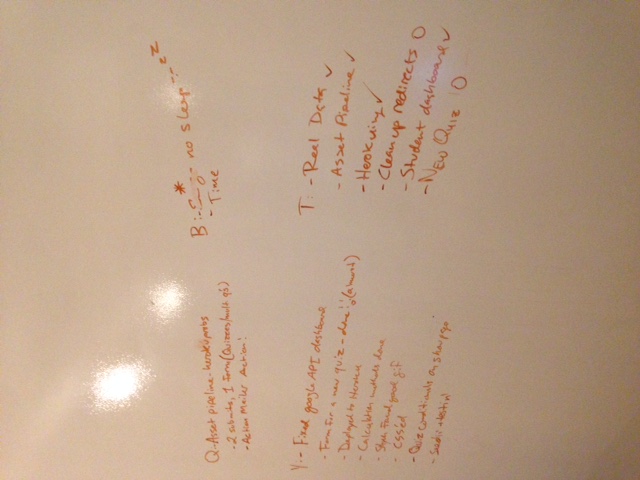 Q-Asset pipeline-heroku probs
- 2 submits, 1 form (Quizzes/mult q's)
- Action Mailer Action!
B: no sleep ... zz
- Time
Y: - Fixed google API dashboard
- Form for a new quiz - done!! (almost)
- Deployed to Heroku
- Calculation methods done
- found good gif
- CSS'ed
- Quiz conditionals on show pgs
- testing
T: - Reel Data ✓
- Asset Pipeline ✓
- Herokuing ✓
- Clean up redirects O
- Student dashboard ✓
- New Quiz O